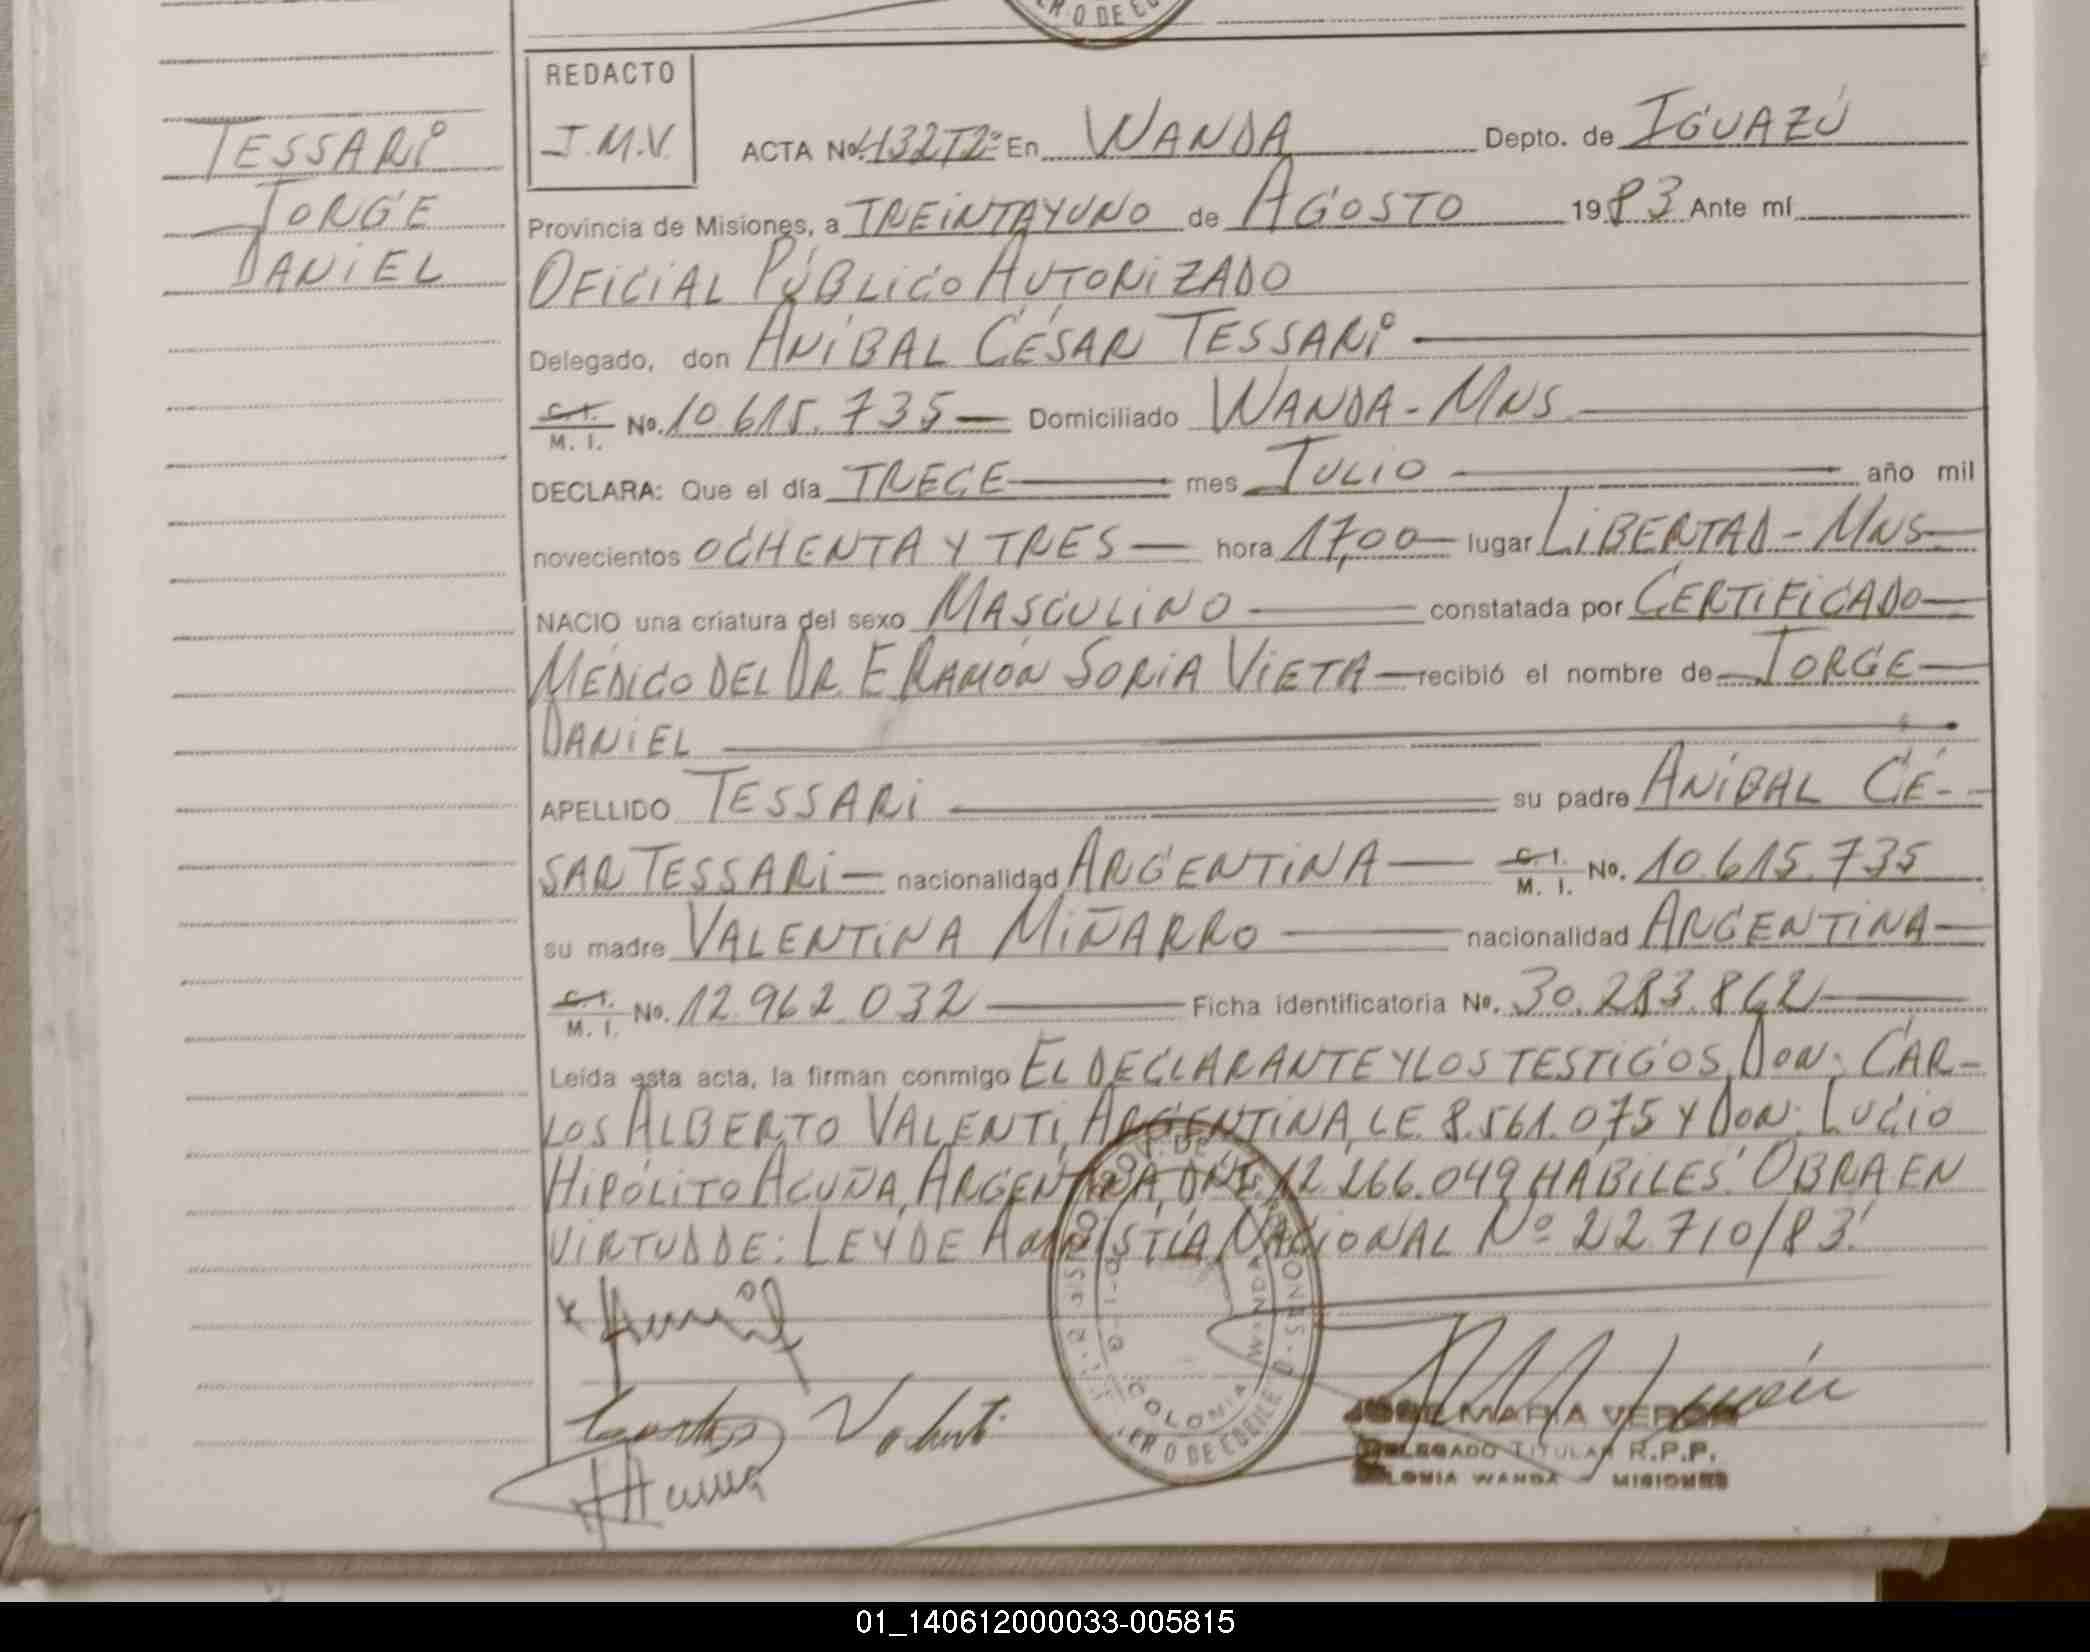 TESSARI
JORGE
DANIEL
REDACTO
J.M.V.
ACTA No. 432T2º En WANDA Depto. de IGUAZÚ
Provincia de Misiones, a TREINTAYUNO de AGOSTO 1983 Ante mí
OFICIAL PÚBLICO AUTORIZADO
Delegado, don ANÍBAL CÉSAR TESSARI
C. I. / M. I. No. 10.615.735 — Domiciliado WANDA - MNS
DECLARA: Que el día TRECE mes JULIO año mil
novecientos OCHENTA Y TRES — hora 17,00 — lugar LIBERTAD - MNS
NACIO una criatura del sexo MASCULINO constatada por CERTIFICADO
MÉDICO DEL DR. E RAMÓN SORIA VIETA — recibió el nombre de JORGE
DANIEL
APELLIDO TESSARI su padre ANÍBAL CÉ-
SAR TESSARI — nacionalidad ARGENTINA — C. I. / M. I. No. 10.615.735
su madre VALENTINA MIÑARRO nacionalidad ARGENTINA
C. I. / M. I. No. 12.962.032 Ficha identificatoria No. 30.283.862
Leída esta acta, la firman conmigo EL DECLARANTE Y LOS TESTIGOS, DON: CAR-
LOS ALBERTO VALENTI, ARGENTINA, LE. 8.561.075 Y DON: LUCIO
HIPÓLITO ACUÑA, ARGENTINA, DNI. 12.266.049 HÁBILES. OBRA EN
VIRTUD DE: LEY DE AMNISTÍA NACIONAL Nº 22710/83.
COLONIA WANDA
JOSE MARIA VERON
DELEGADO TITULAR R.P.P.
COLONIA WANDA - MISIONES
01_140612000033-005815